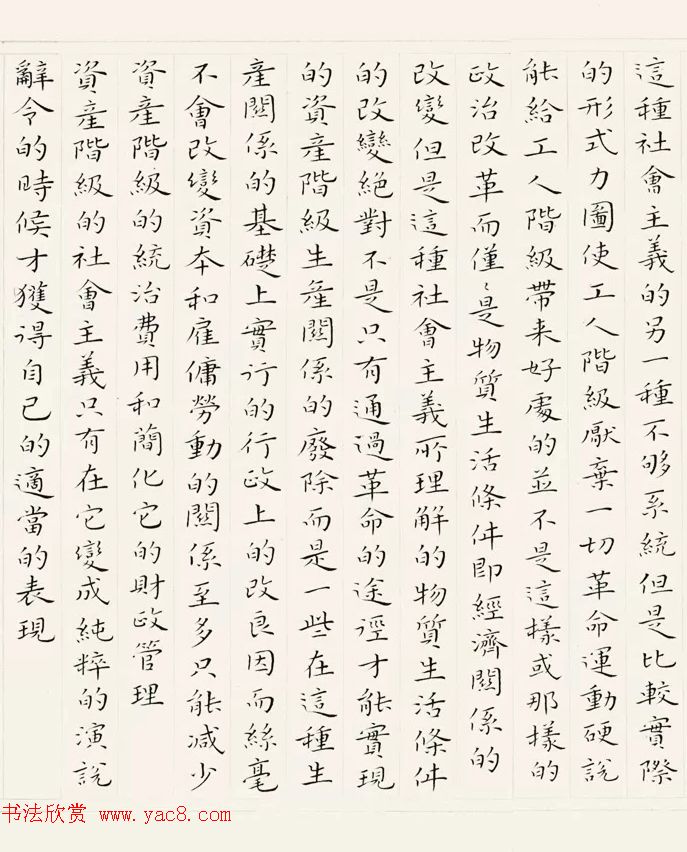 這種社會主義的另一種不够系統但是比較實際
的形式力圖使工人階級厭棄一切革命運動硬説
能給工人階級帶来好處的並不是這樣或那樣的
政治改革而僅〻是物質生活條件即經濟關係的
改變但是這種社會主義所理解的物質生活條件
的改變絕對不是只有通過革命的途徑才能實現
的資産階級生産關係的廢除而是一些在這種生
産關係的基礎上實行的行政上的改良因而絲毫
不會改變資本和雇傭勞動的關係至多只能減少
資産階級的統治費用和簡化它的財政管理
資産階級的社會主義只有在它變成純粹的演説
辭令的時候才獲得自己的適當的表現
书法欣赏 www.yac8.com